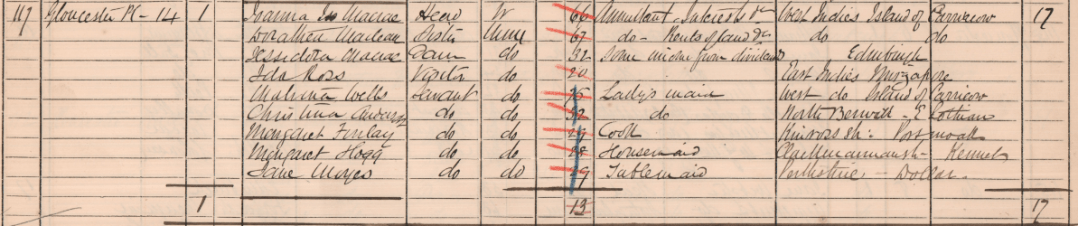 117 Gloucester Pl - 14 1 Joanna Macrae Head W 66 Annuitant, Interest &c West Indies Island of Carriacou 17
Dorothea Maclean Sister Unm 67 do - Rents of land &c do do
Jessidora Macrae Daur do 32 Some income from dividends Edinburgh
Ida Ross Visitor do 20 East Indies Mirzapore
Malvina Wells Servant do 75 Lady's maid West do Island of Carriacou
Christina do do 32 do North Berwick - E Lothian
Margaret Finlay do do 29 Cook Kinross sh: Portmoak
Margaret Hogg do do 28 Housemaid Clackmannansh - Kennet
Jane Moyes do do 29 Tablemaid Perthshire - Dollar.
1 13 17